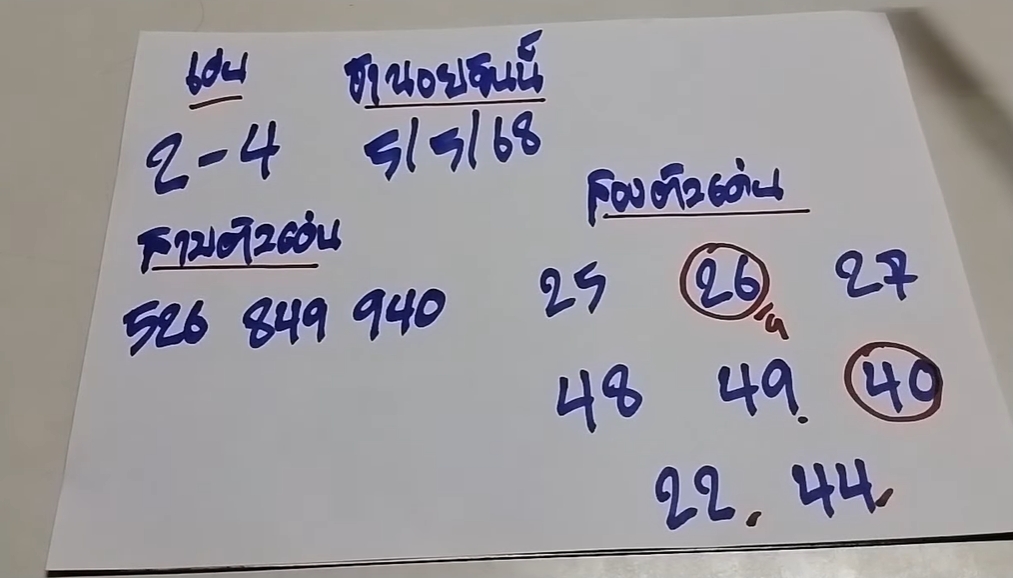 เด่น ฮานอยวันนี้
2-4 5/5/68
สามตัวเด่น
526 849 940
สองตัวเด่น
25 26 27
48 49. 40
22. 44.